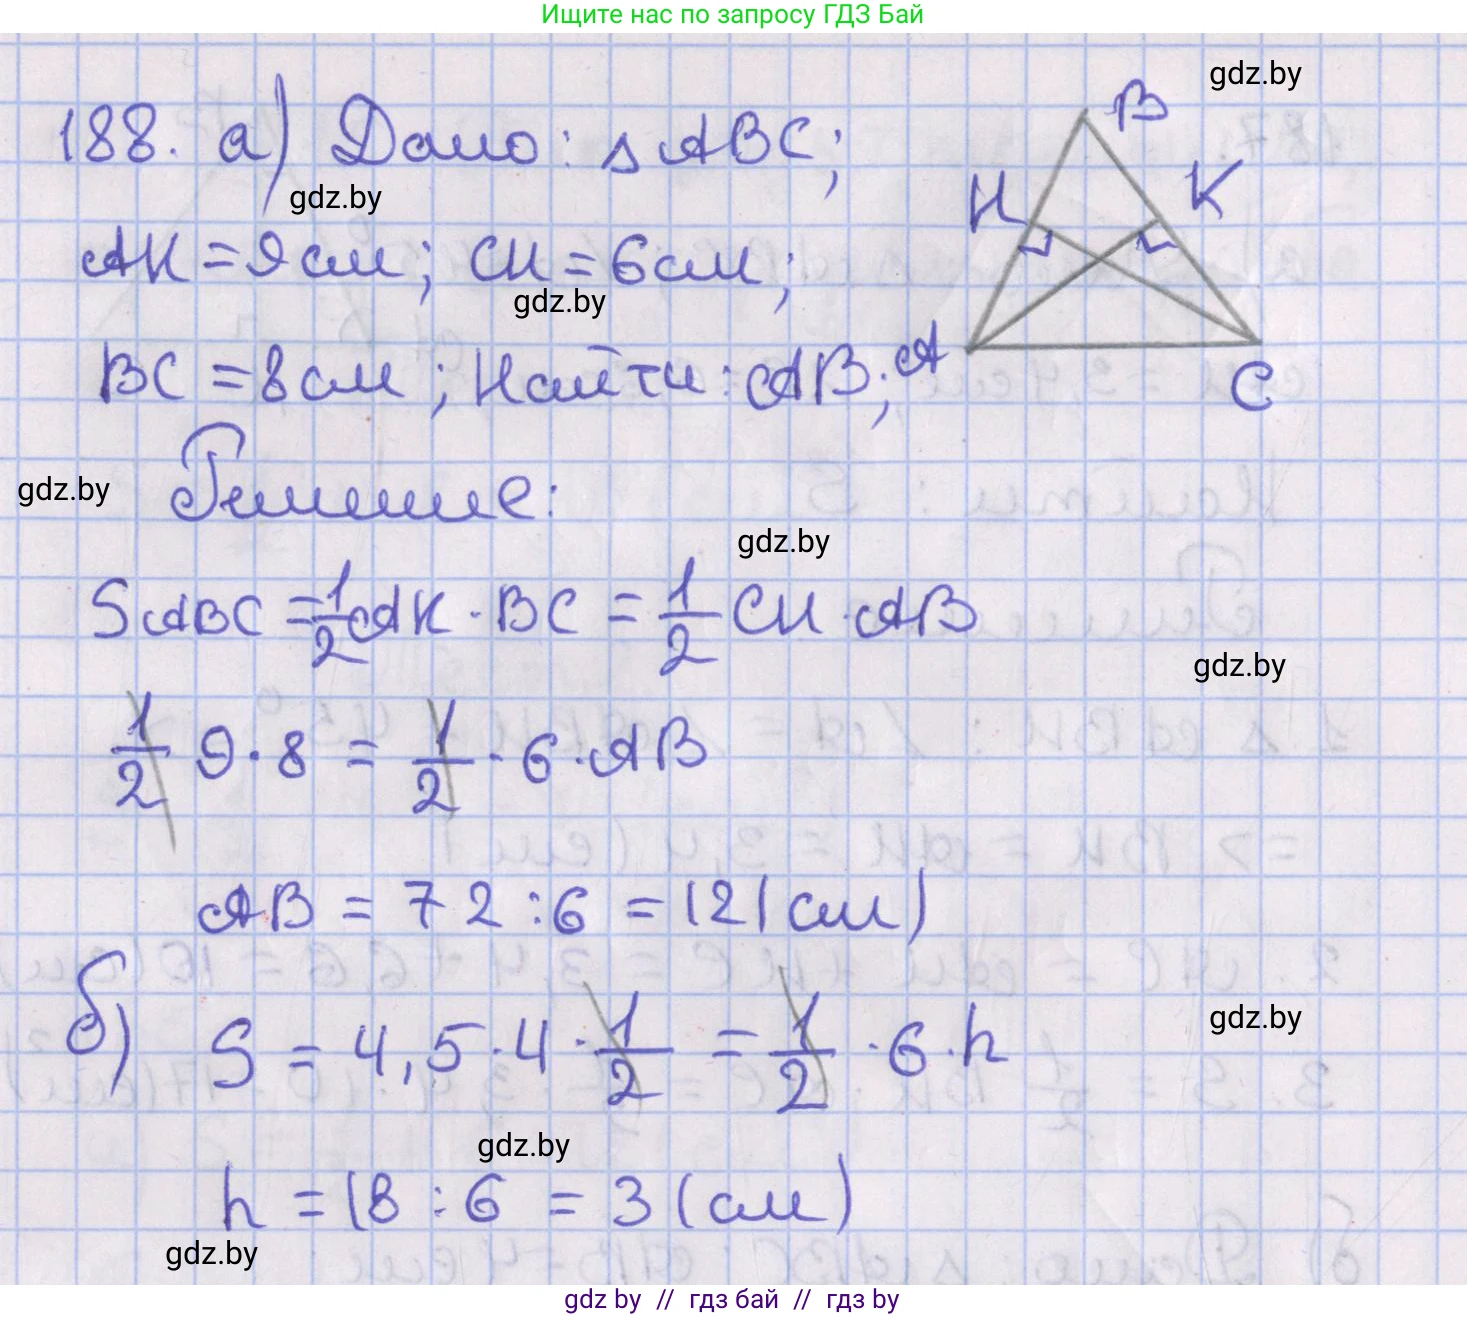 Ищите нас по запросу ГДЗ Бай
gdz.by
188. а) Дано: △ABC;
gdz.by
AK = 9 см; CH = 6 см;
gdz.by
BC = 8 см; Найти: AB;
B
H
K
A
C
Решение:
gdz.by
gdz.by
S ABC = 1/2 AK · BC = 1/2 CH · AB
gdz.by
1/2 9 · 8 = 1/2 · 6 · AB
AB = 72 : 6 = 12 (см)
б) S = 4,5 · 4 · 1/2 = 1/2 · 6 · h
gdz.by
gdz.by
h = 18 : 6 = 3 (см)
gdz.by
gdz by // гдз бай // гдз by